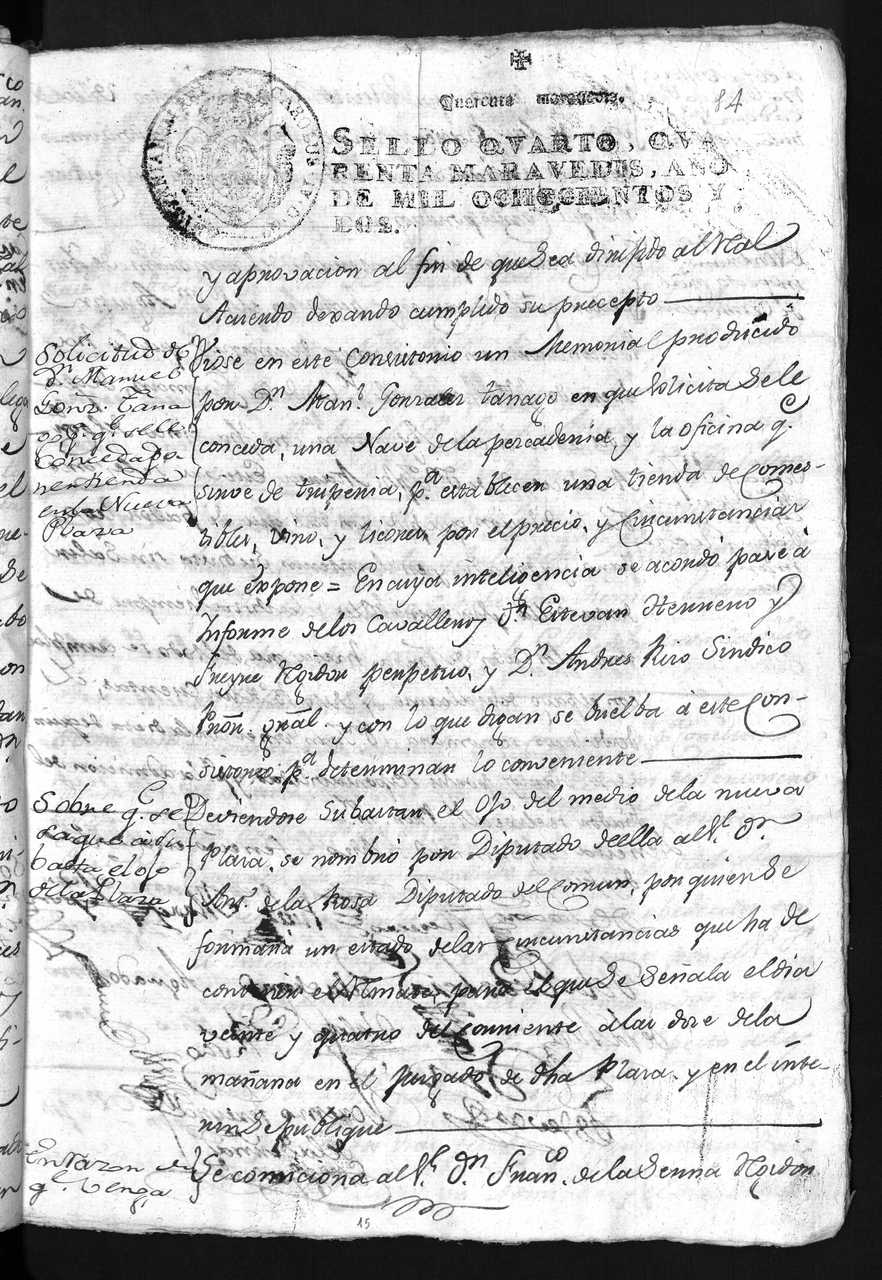 Quarenta maravedis.
84
SELLO QVARTO, QVA
RENTA MARAVEDIS, AÑO
DE MIL OCHOCIENTOS Y
DOS.
y aprovacion al fin de que sea dirijido al Rl
Acuerdo dexando cumplido su precepto
Solicitud de
Dn. Manuel
Gonz. Tana
go pa. q. se lle
conceda po
ner tienda
en la Nueva
Plaza
Viose en este Consistorio un Memorial producido
por Dn. Man.l Gonzalez tanago en que solicita se le
conceda, una Nave de la percaderia, y la oficina q.e
sirve de triperia, p.a establecer una tienda de comes-
tibles, vino, y licores, por el precio, y circunstancias
que expone = En cuya inteligencia se acordó pase á
Informe de los Cavalleros Dn. Estevan Herrero y
Freyre Rexidor perpetuo, y D.n Andres Riro Sindico
Prõr. gñal. y con lo que digan se buelba á este Con-
sistorio p.a determinar lo conveniente
Sobre q.e se
saque á su
basta el ojo
de la Plaza
Deviendose Subastar el Ojo del medio de la nueva
Plaza, se nombró por Diputado de ella al S.r Dn.
Ant.o de la Rosa Diputado del Comun, por quien se
formará un estado de las circunstancias que ha de
contener el Remate, para el que se señala el dia
veinte y quatro del corriente á las doce de la
mañana en el juzgado de dha Plaza y en el inte-
rin se publique
En razon de
q.e venga
Se comiciona al S.r Dn. Fran.co de la Serna Rexidor
15